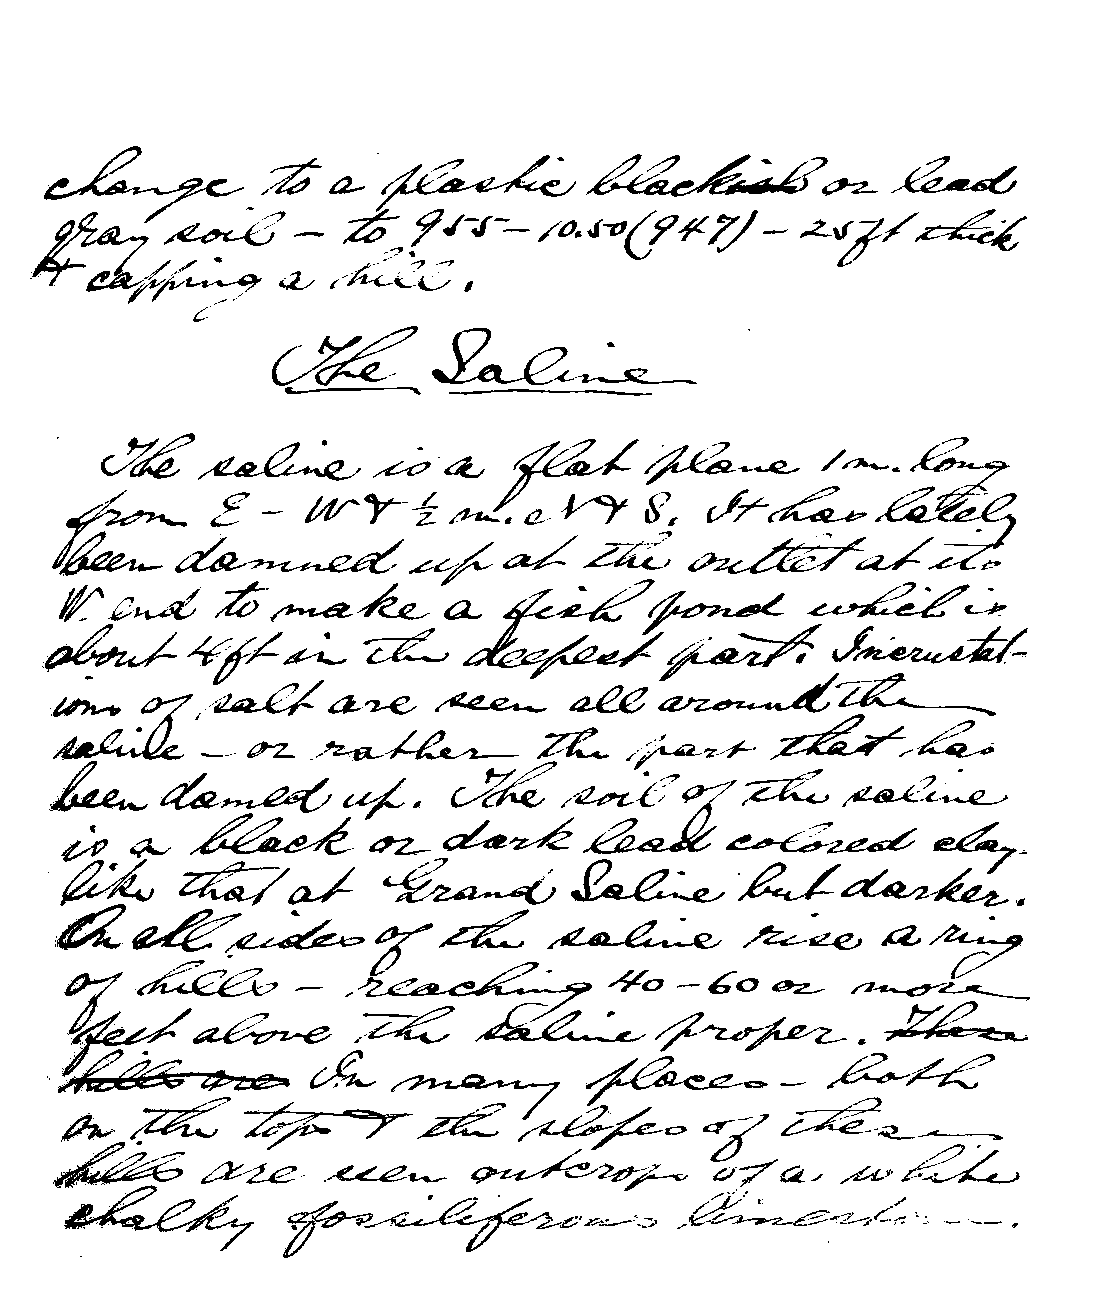 change to a plastic black or lead
gray soil – to 955 – 10.50 (947) – 25 ft thick
& capping a hill.
The Saline
The saline is a flat plane 1 m. long
from E – W & ½ m. N & S. It has lately
been damned up at the outlet at its
W. end to make a fish pond which is
about 4 ft in the deepest part. Incrustat-
ions of salt are seen all around the
saline – or rather the part that has
been damed up. The soil of the saline
is a black or dark lead colored clay
like that at Grand Saline but darker.
On all sides of the saline rise a ring
of hills – reaching 40 – 60 or more
feet above the saline proper. These
hills are In many places – both
on the tops & the slopes of these
hills are seen outcrops of a white
chalky fossiliferous limestone.